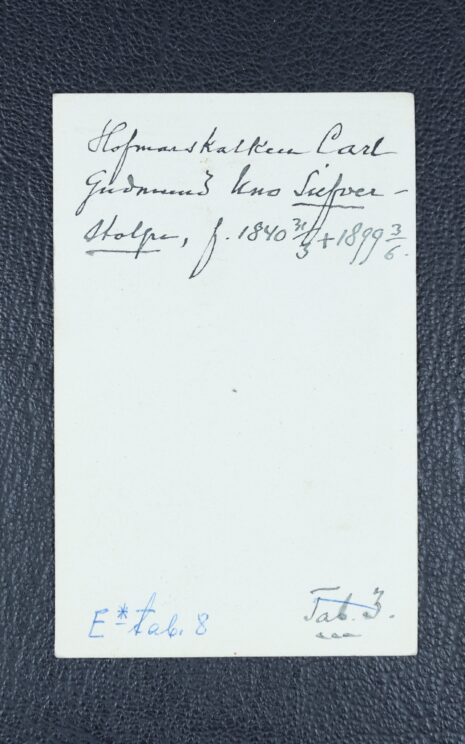 Hofmarskalken Carl
Gudmund Uno Silfver-
stolpe, f. 1840 31/3 + 1899 3/6.
E* tab. 8
Tab. 3.